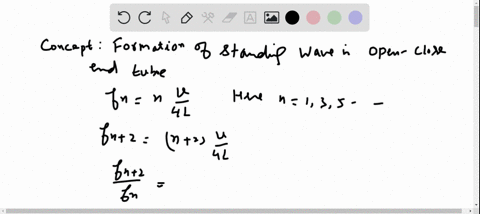 Concept: Formation of standing wave in open-close
end tube
fn = n v/4L Here n = 1, 3, 5 - -
fn+2 = (n+2) v/4L
fn+2/fn =